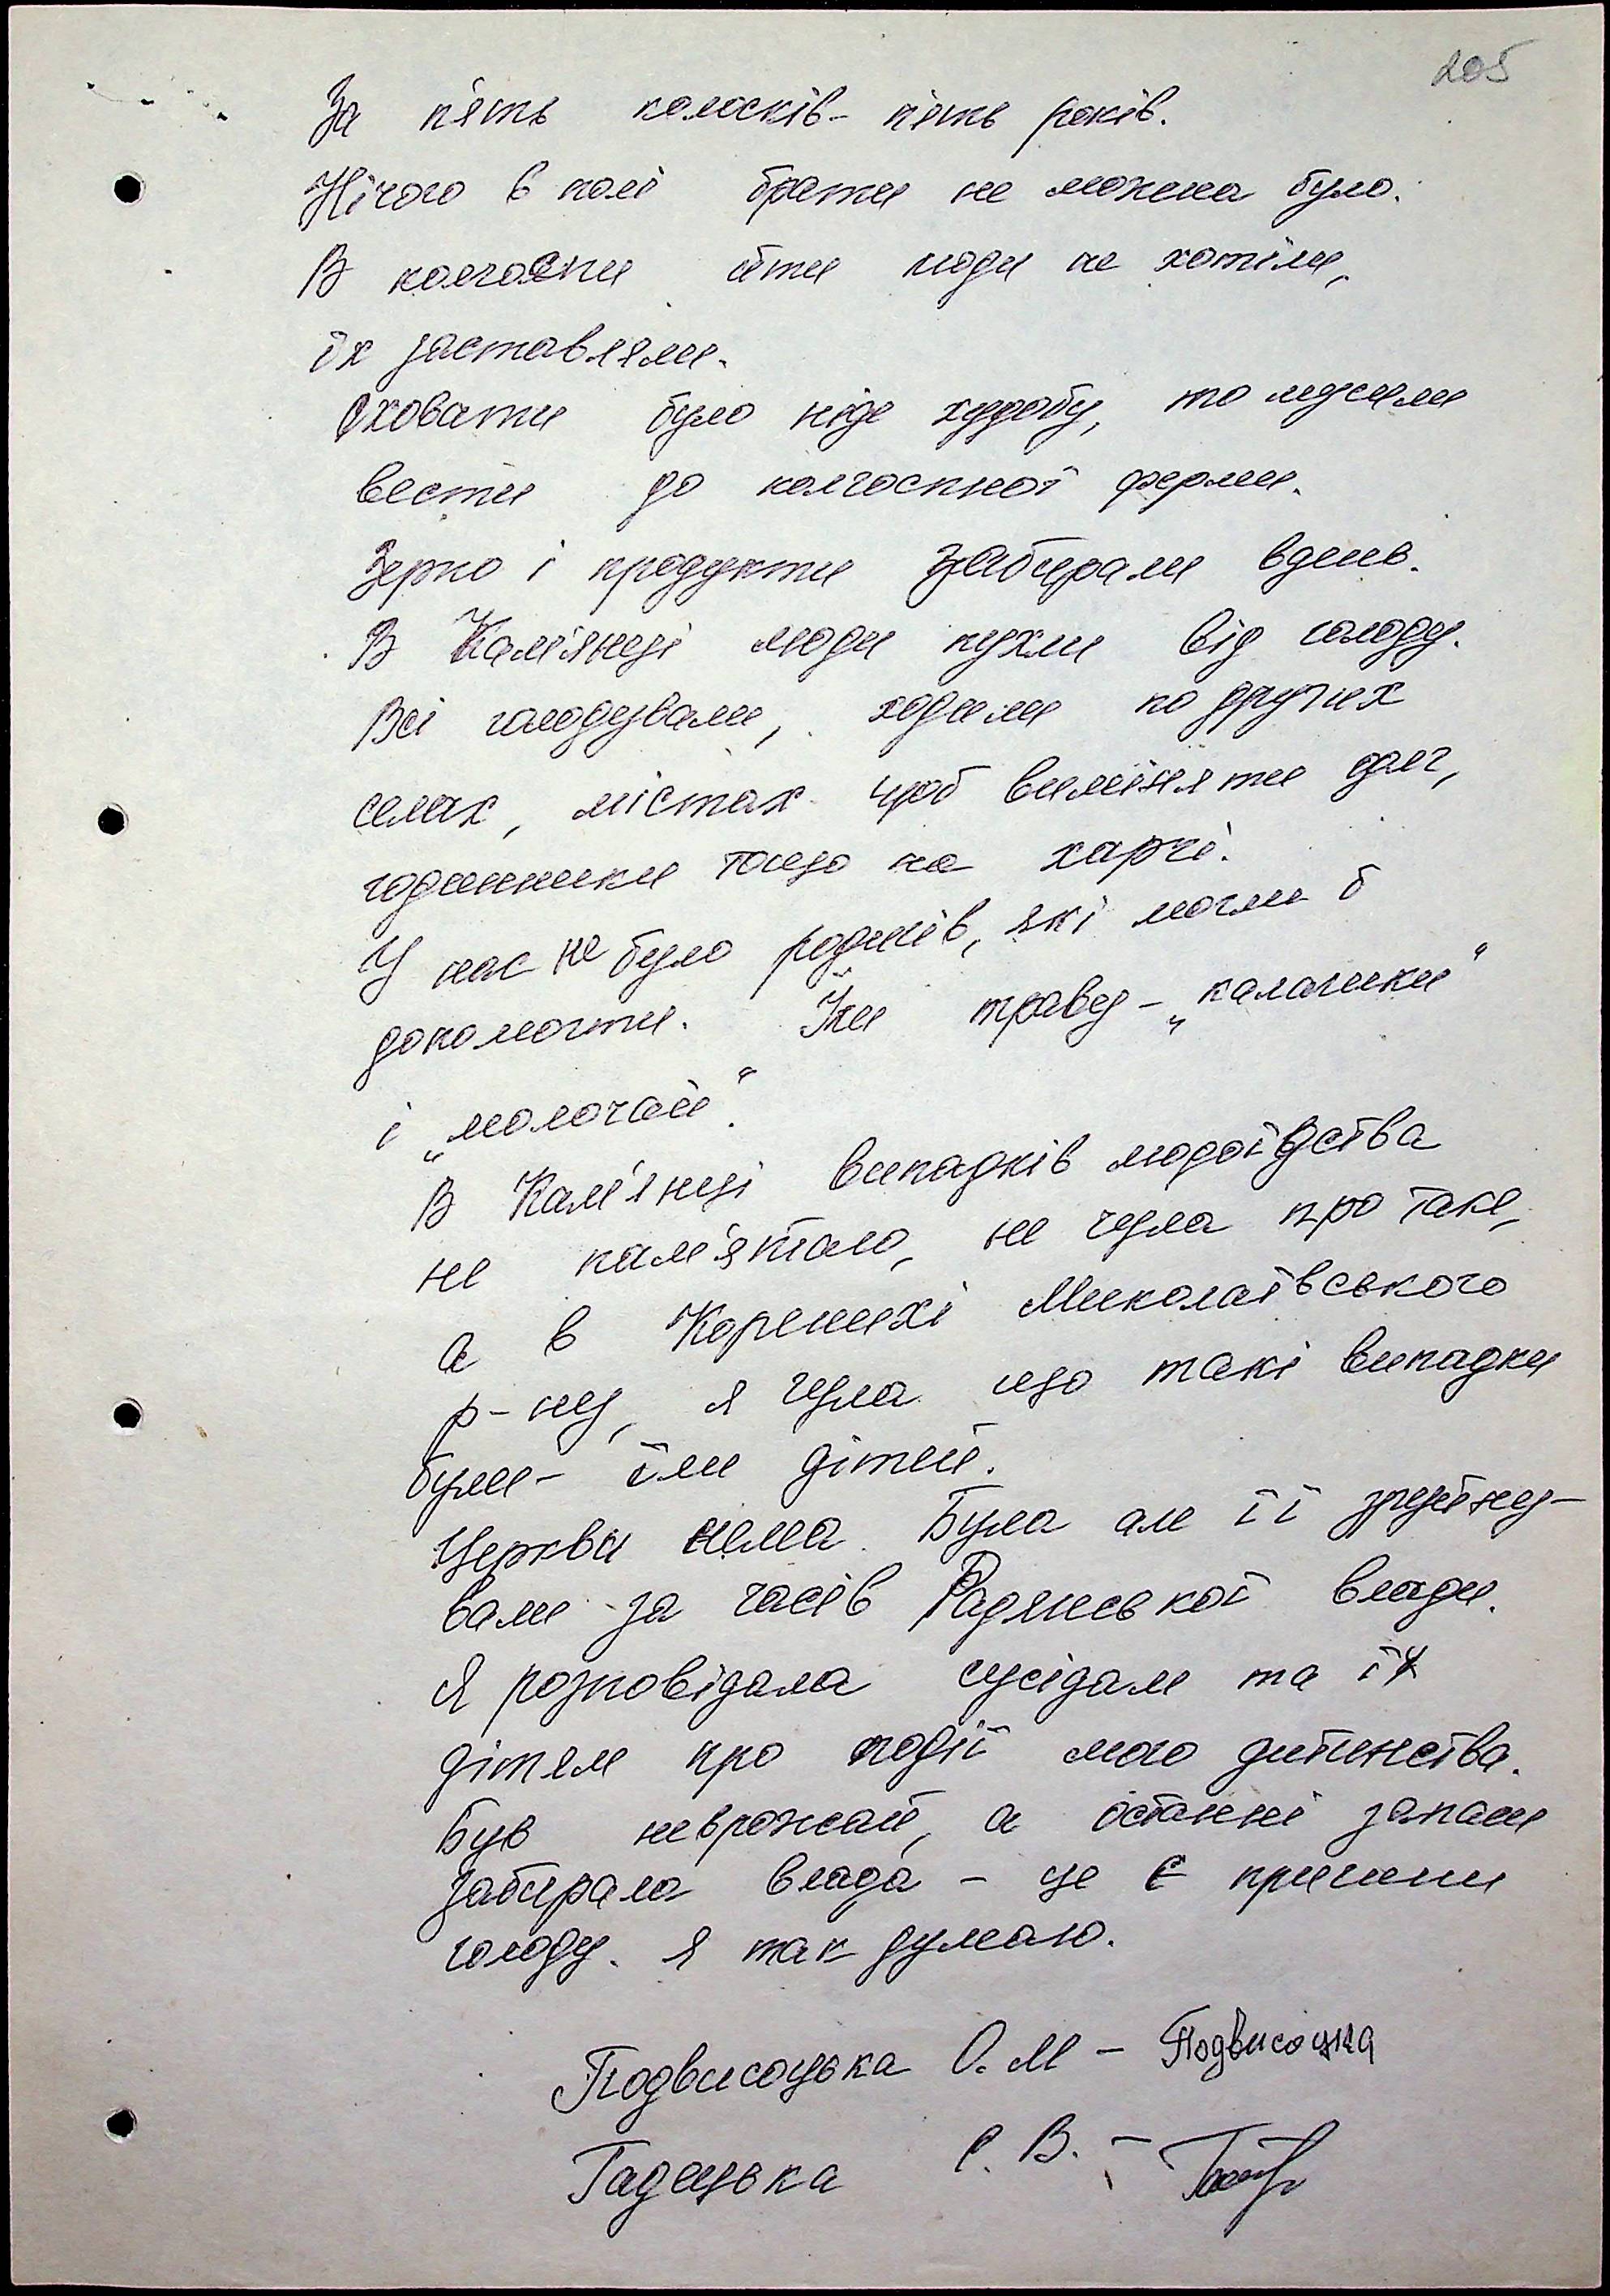 205
За п'ять колосків - п'ять років.
Нічого в полі брати не можна було.
В колгоспи йти люди не хотіли,
їх заставляли.
Сховати було ніде худобу, то мусили
вести до колгоспної ферми.
Зерно і продукти забирали вдень.
В Кам'янці люди пухли від голоду.
Всі голодували, ходили по других
селах, містах щоб виміняти одяг,
годинники тощо на харчі.
У нас не було родичів, які могли б
допомогти. Їли траву - „калачики"
і „молочай".
В Кам'янці випадків людоїдства
не пам'ятаю, не чула про таке,
а в Коренихі Миколаївського
р-ну, я чула що такі випадки
були - їли дітей.
Церкви нема. Була але її зруйну-
вали за часів Радянської влади.
Я розповідала сусідам та їх
дітям про події мого дитинства.
Був неврожай, а останні запаси
забирала влада - це є причини
голоду. Я так думаю.
Подвисоцька О. М - Подвисоцка
Гадецька С. В. -